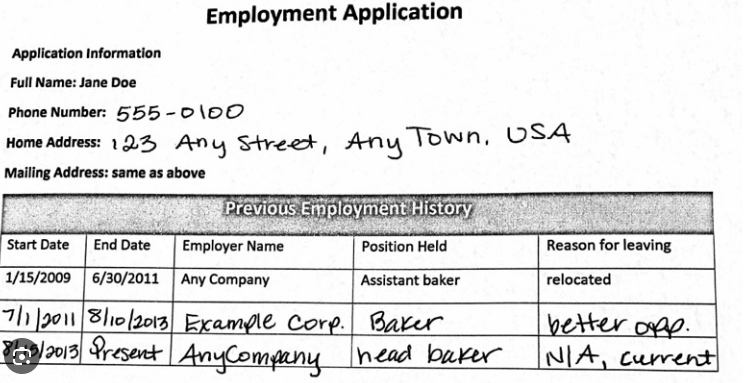 Employment Application
Application Information
Full Name: Jane Doe
Phone Number: 555-0100
Home Address: 123 Any Street, Any Town, USA
Mailing Address: same as above
Previous Employment History
Start Date End Date Employer Name Position Held Reason for leaving
1/15/2009 6/30/2011 Any Company Assistant baker relocated
7/1/2011 8/10/2013 Example Corp. Baker better opp.
/2013 Present AnyCompany head baker N/A, current